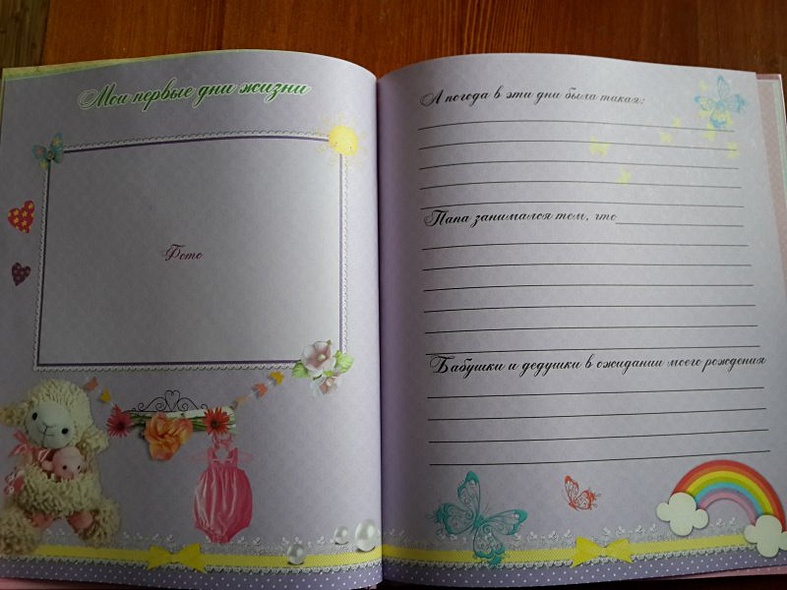 Мои первые дни жизни
Фото
А погода в эти дни была такая:
Папа занимался тем, что
Бабушки и дедушки в ожидании моего рождения